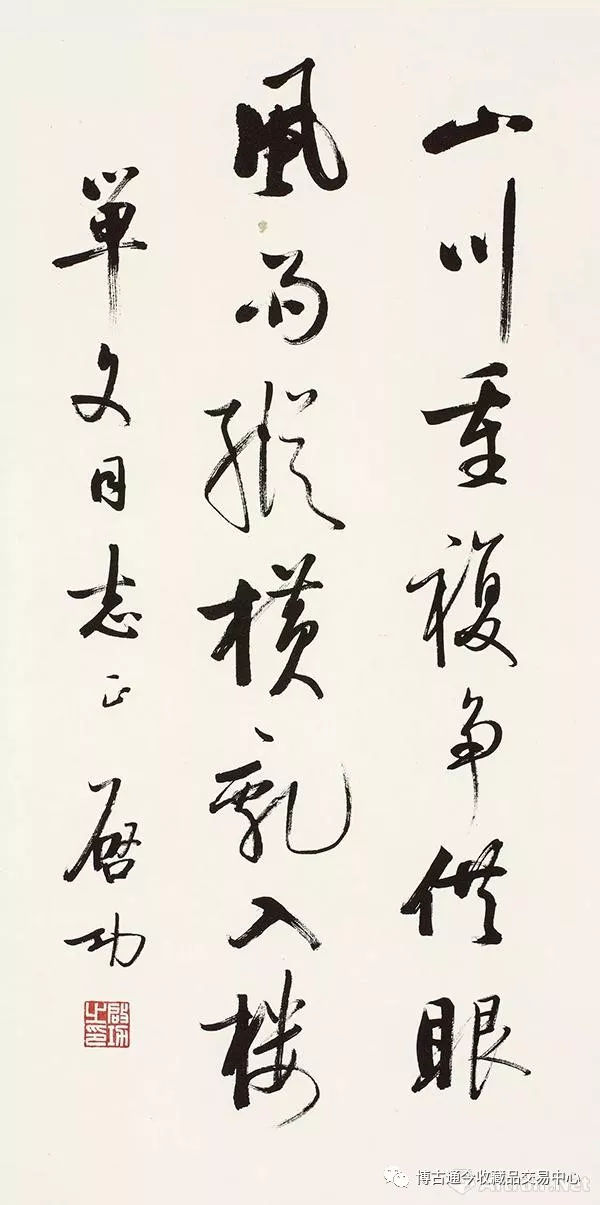 山川重複争供眼
風雨縱橫亂入楼
單文同志正 啓功
啟功之印
博古通今收藏品交易中心
Artron.Net